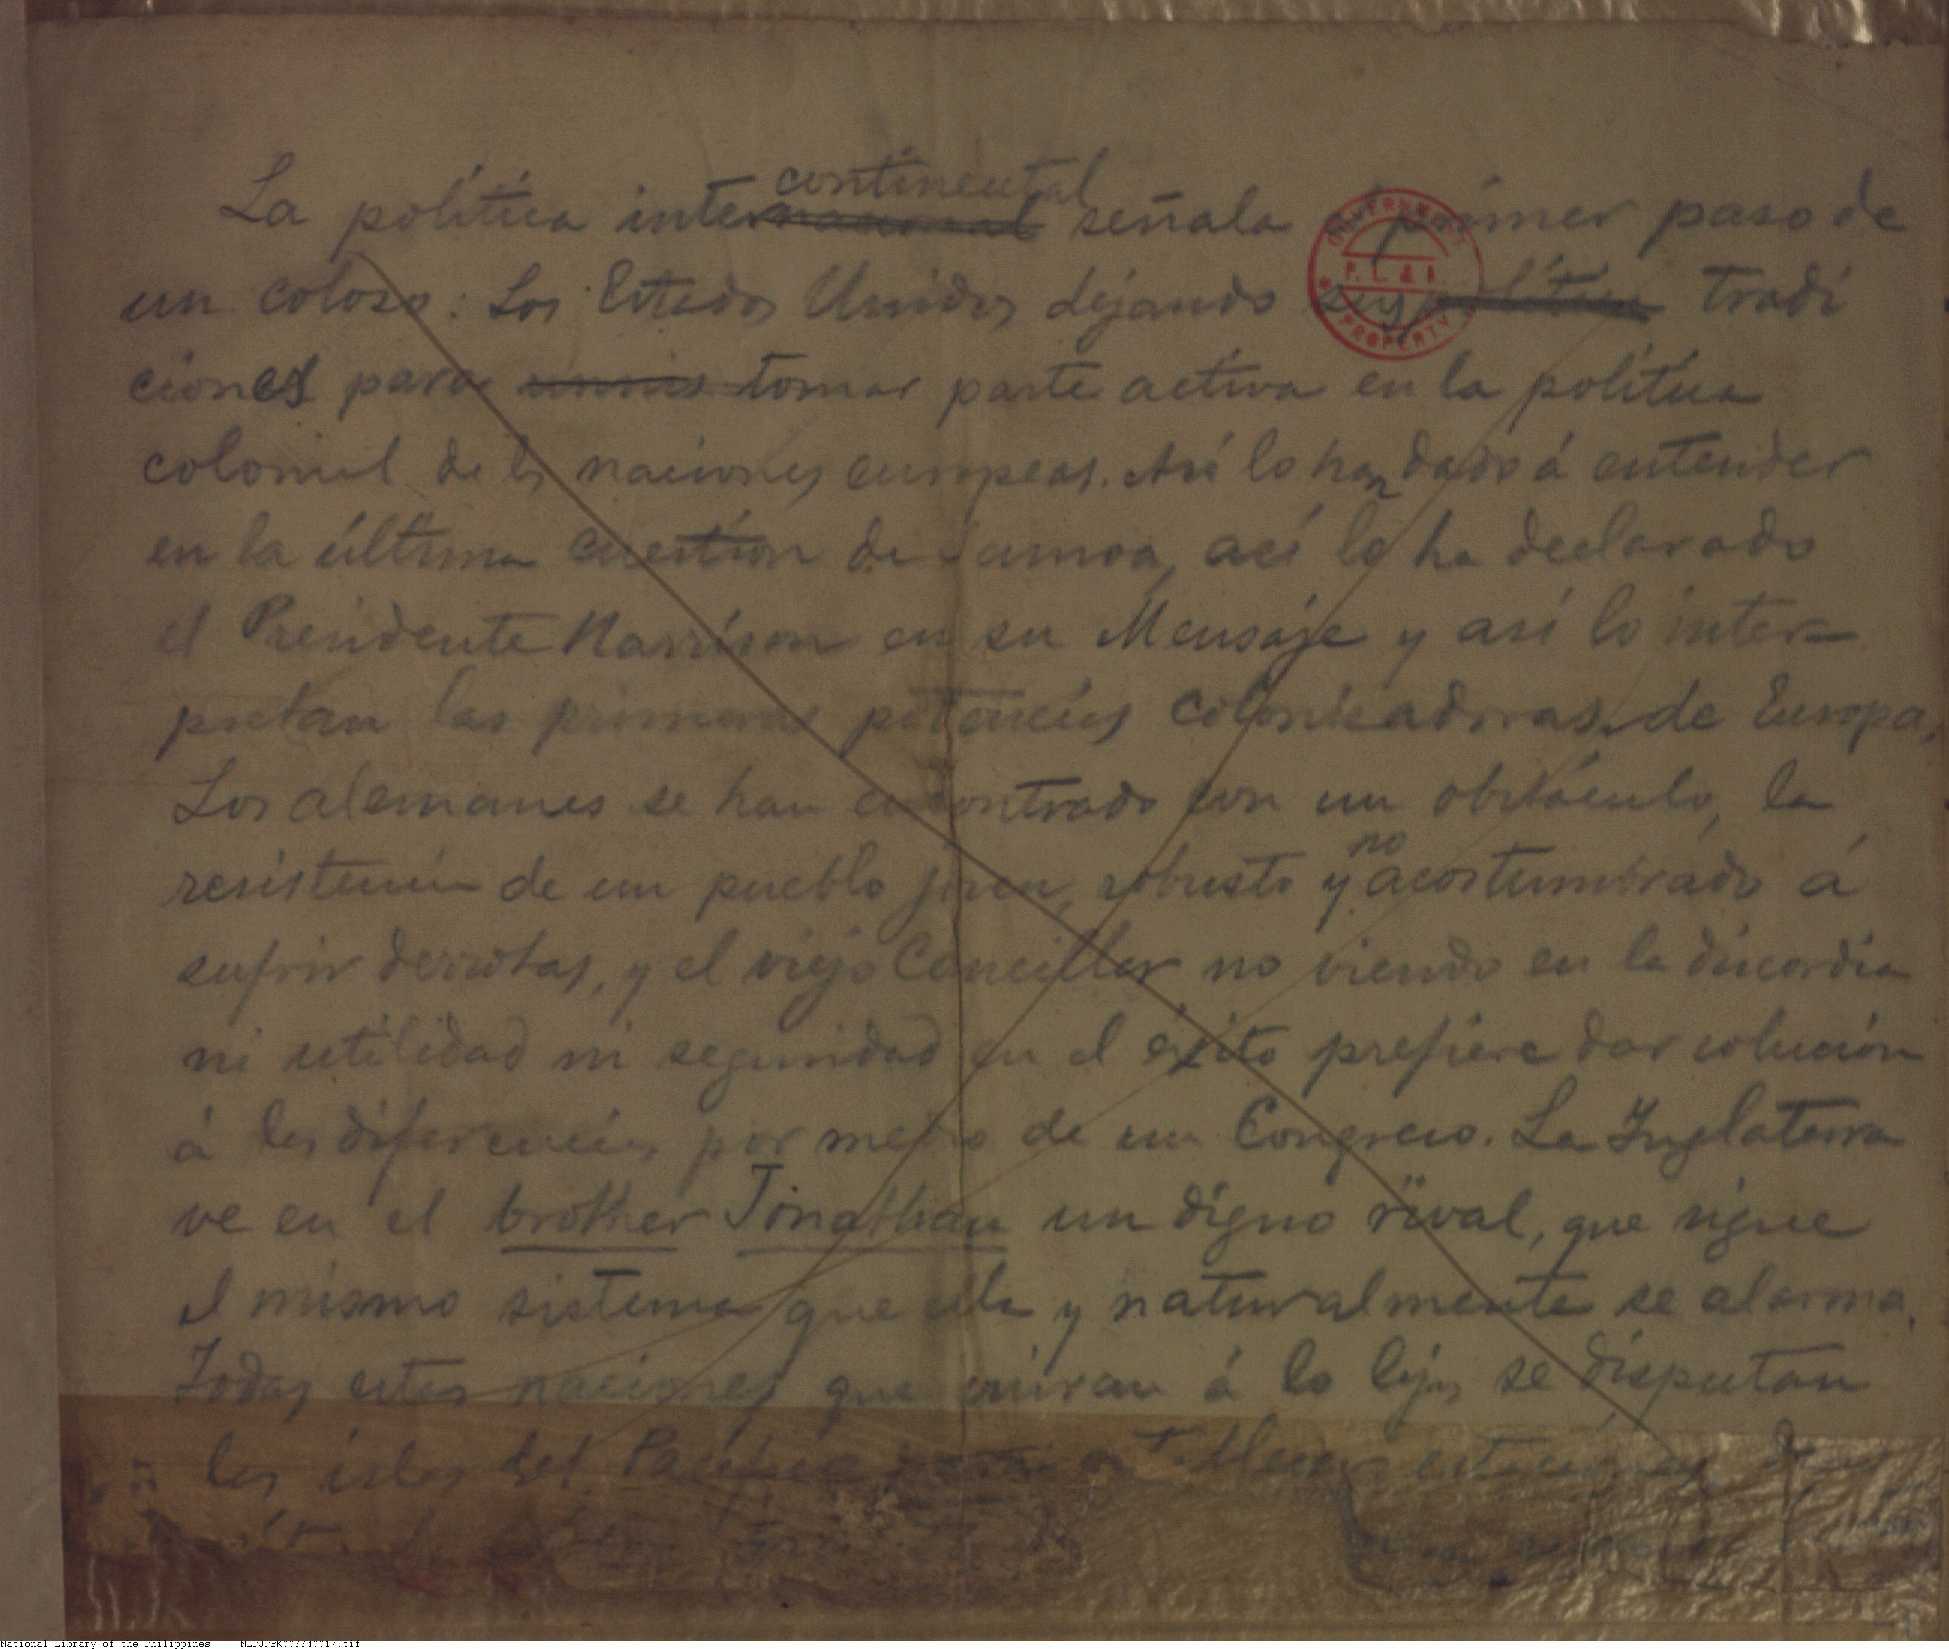 La política inter continental señala el primer paso de
un coloso: Los Estados Unidos dejando sus política tradi
ciones para tomar parte activa en la política
colonial de las naciones europeas. Así lo han dado á entender
en la última cuestión de Samoa, así lo ha declarado
el Presidente Harrison en su Mensaje y así lo inter-
pretan las primeras potencias colonizadoras de Europa.
Los alemanes se han encontrado con un obstáculo, la
resistencia de un pueblo joven, robusto y no acostumbrado á
sufrir derrotas, y el viejo Canciller no viendo en la discordia
ni utilidad ni seguridad en el éxito prefiere dar solución
á las diferencias por medio de un Congreso. La Inglaterra
ve en el brother Jonathan un digno rival, que sigue
el mismo sistema que ella y naturalmente se alarma.
Todas estas naciones que miran á lo lejos se disputan
las islas del Pacífico para establecer estaciones
GOVERNMENT
P. L. & M.
PROPERTY
National Library of the Philippines